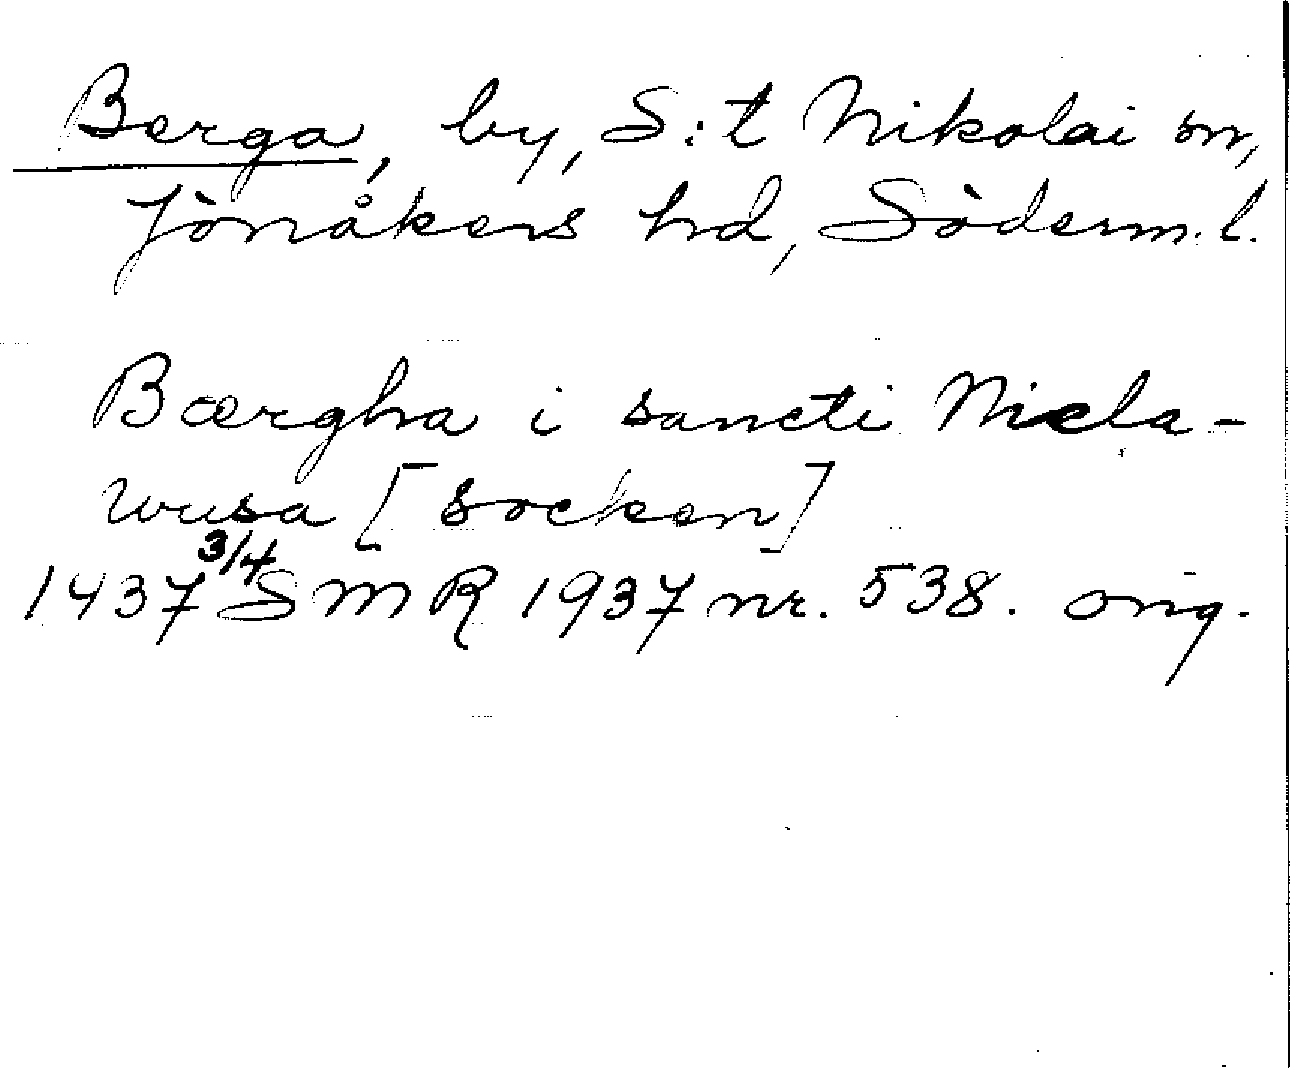 Berga, by, S:t Nikolai sn,
Jönåkers hd, Söderm. l.
Bærgha i sancti Niela-
wusa [socken]
1437 3/4 SMR 1937 nr. 538. orig.